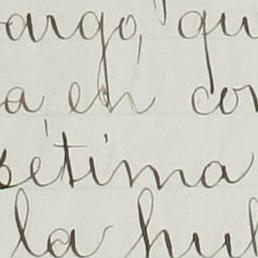 argo, qu
a en con
sétima
la hub